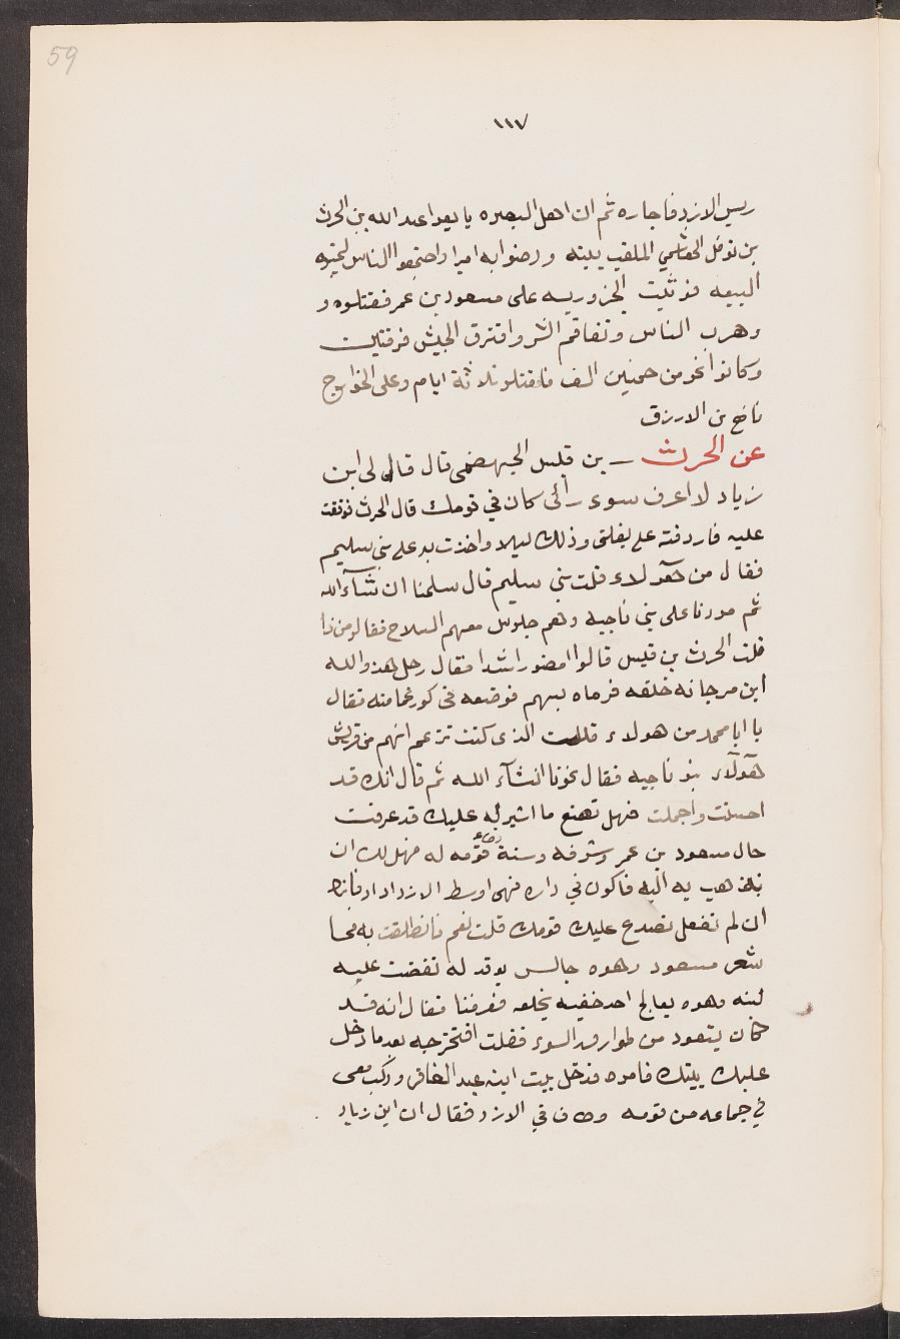 59
١١٧
ريس الازد فاجاره ثم ان اهل البصره بايعوا عبد الله بن الحرث
بن نوفل الهاشمي الملقب ببته ورضوا به اميرا واجتمعوا الناس لتجيزه
البيعه فوثبت الحزوريه على مسعود بن عمر فقتلوه و
وهرب الناس وتفاقم الشر وافترق الجيش فرقتين
وكانوا نحو من خمسين الف فاقتتلو ثلاثة ايام وعلى الخوارج
نافع بن الازرق
عن الحرث بن قيس الجهضمى قال قال لى ابن
زياد لا اعرف سوى رأئى كان في قومك قال الحرث فوقفت
عليه فاردفته على بغلتى وذلك ليلا واخذت به على بني سليم
فقال من هؤلاء قلت بني سليم قال سلمنا ان شآء الله
ثم مورنا على بني ناجيه وهم جلوس معهم السلاح فقالو من ذا
قلت الحرث بن قيس قالوا امض راشدا فقال رجل هذ والله
ابن مرجانه خلفه فرماه بسهم فوضعه فى كور عمامته فقال
يا ابا محمد من هولاء قلت الذى كنت تزعم انهم من قريش
هؤلآء بنو ناجيه فقال نجونا انشآء الله ثم قال انك قد
احسنت واجملت فهل تصنع ما اشير به عليك قد عرفت
حال مسعود بن عمر وشرفه وسنة قومه له فهل لك ان
تذهب به اليه فاكون في داره فهى اوسط الازد دارا فانك
ان لم تفعل تصدع عليك قومك قلت نعم فانطلقت به فما
شعر مسعود وهوه جالس يوقد له
لبنه وهوه يعالج احد خفيه يخلعه فعرفنا فقال انه قد
كان يتعود من طوارق السوء فقلت افتخرجه بعد ما دخل
عليك بيتك فامره فدخل بيت ابنه عبد الغافر وركب معى
في جماعه من قومه وطاف في الازد فقال ان ابن زياد